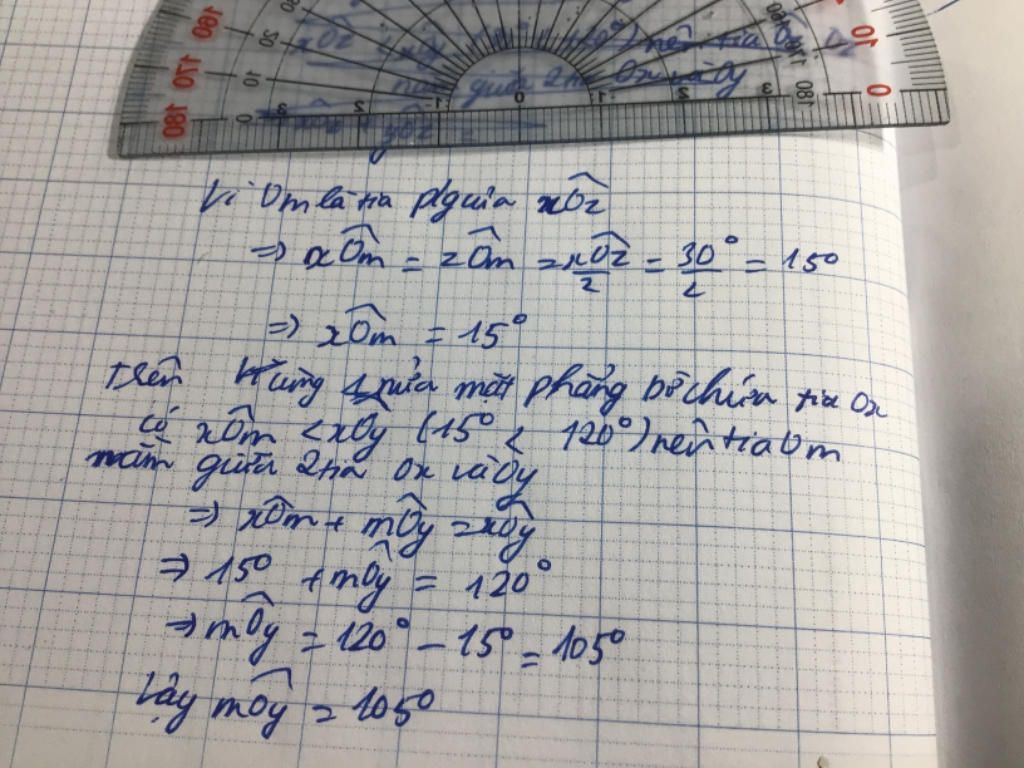 xOz < xOy ( 120°) nên tia Oz
giữa 2 tia Ox và Oy
yOz =
Vì Om là tia p/giữa xOz
=> xOm = zOm = xOz/2 = 30°/2 = 15°
=> xOm = 15°
trên cùng 1 nửa mặt phẳng bờ chứa tia Ox
có xOm < xOy (15° < 120°) nên tia Om
nằm giữa 2 tia Ox và Oy
=> xOm + mOy = xOy
=> 15° + mOy = 120°
=> mOy = 120° - 15° = 105°
Vậy mOy = 105°